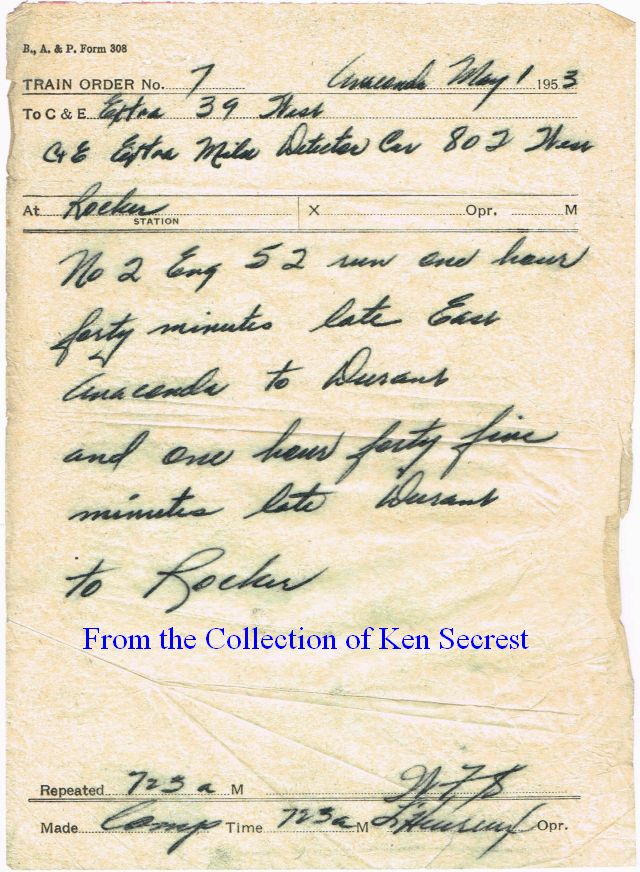 B., A. & P. Form 308
TRAIN ORDER No. 7 Anaconda May 1 1953
To C & E Extra 39 West
C&E Extra Milw Detector Car 802 West
At Rocker STATION X Opr. M
No 2 Eng 52 run one hour
forty minutes late East
Anaconda to Durant
and one hour forty five
minutes late Durant
to Rocker
From the Collection of Ken Secrest
Repeated 723a M
Made Comp Time 723a M Opr.